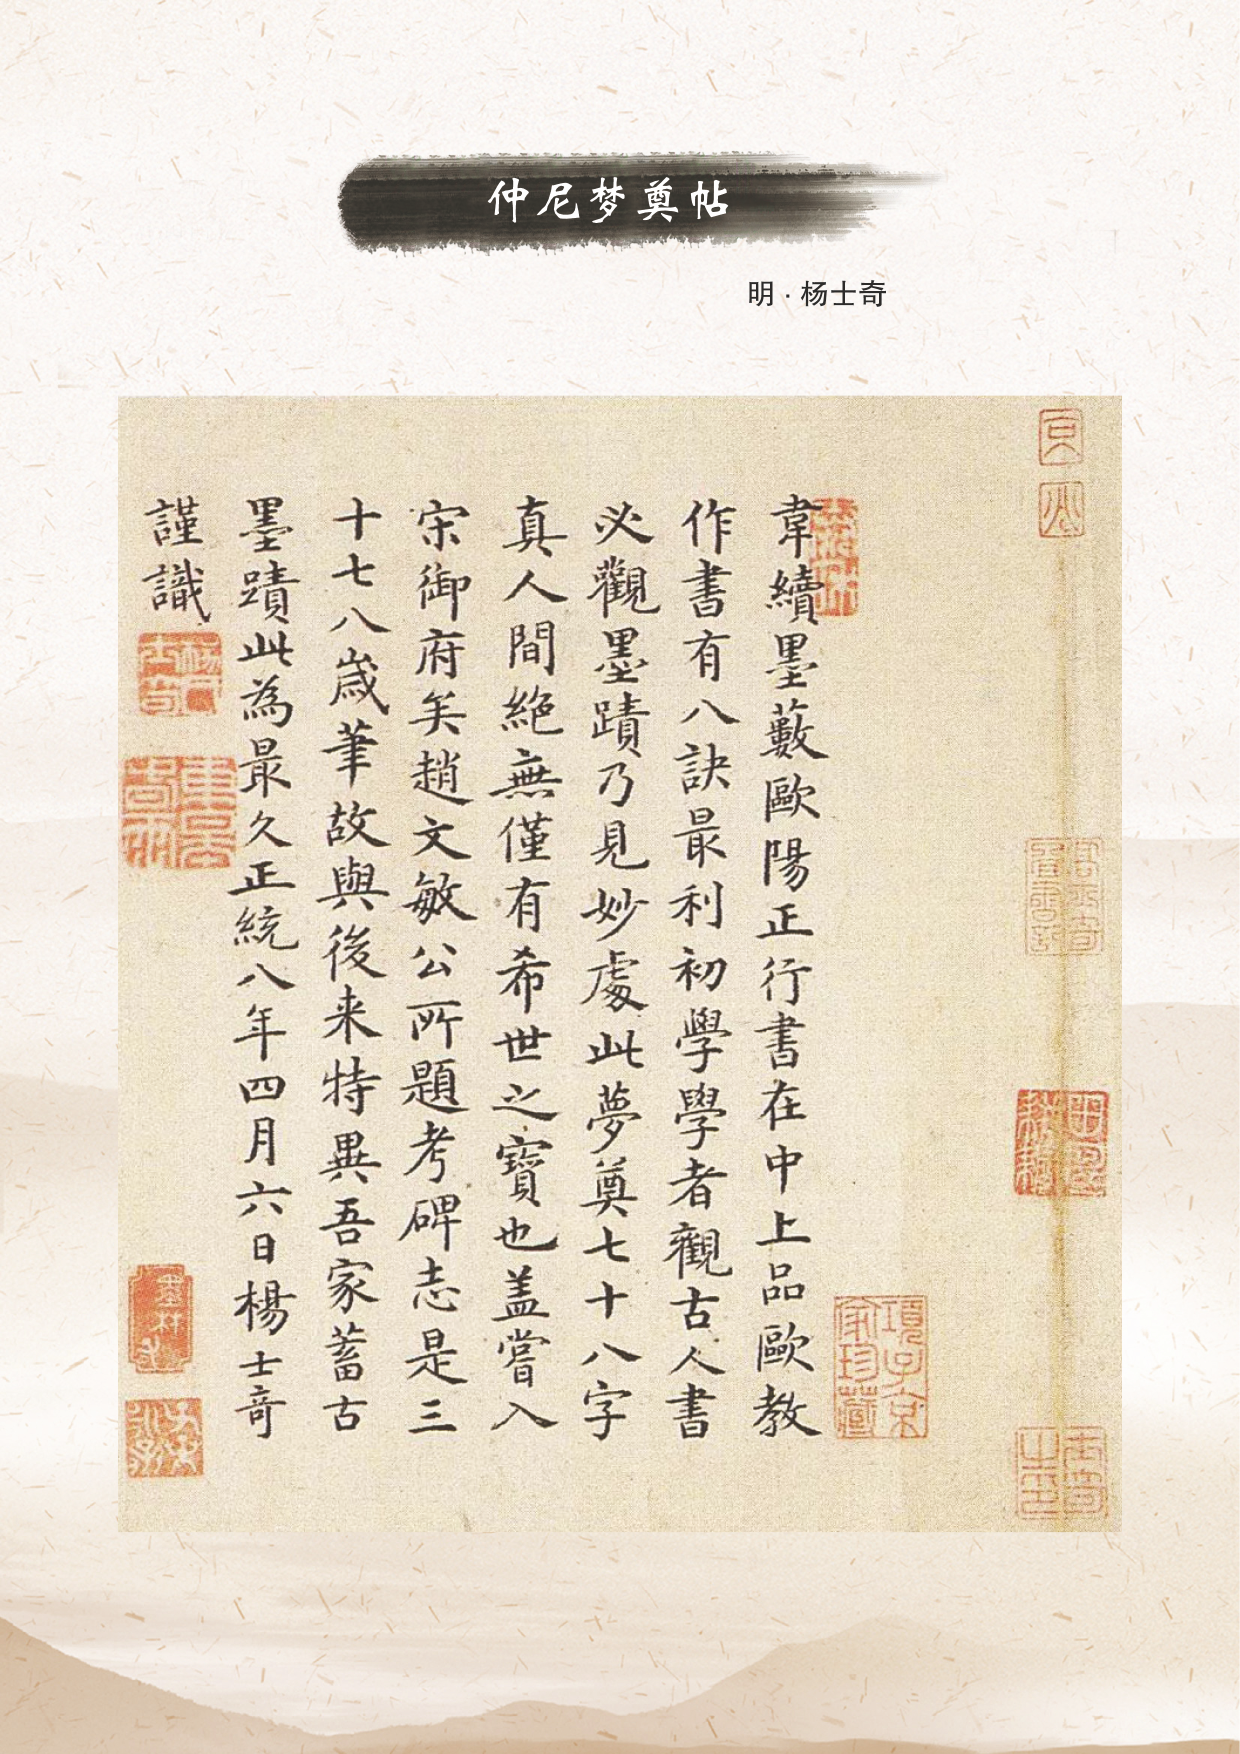 仲尼梦奠帖
明·杨士奇
韋續墨藪歐陽正行書在中上品歐教
作書有八訣最利初學學者觀古人書
必觀墨蹟乃見妙處此夢奠七十八字
真人間絕無僅有希世之寶也盖嘗入
宋御府矣趙文敏公所題考碑志是三
十七八歲筆故與後来特異吾家蓄古
墨蹟此為最久正統八年四月六日楊士竒
謹識
項子京家珍藏